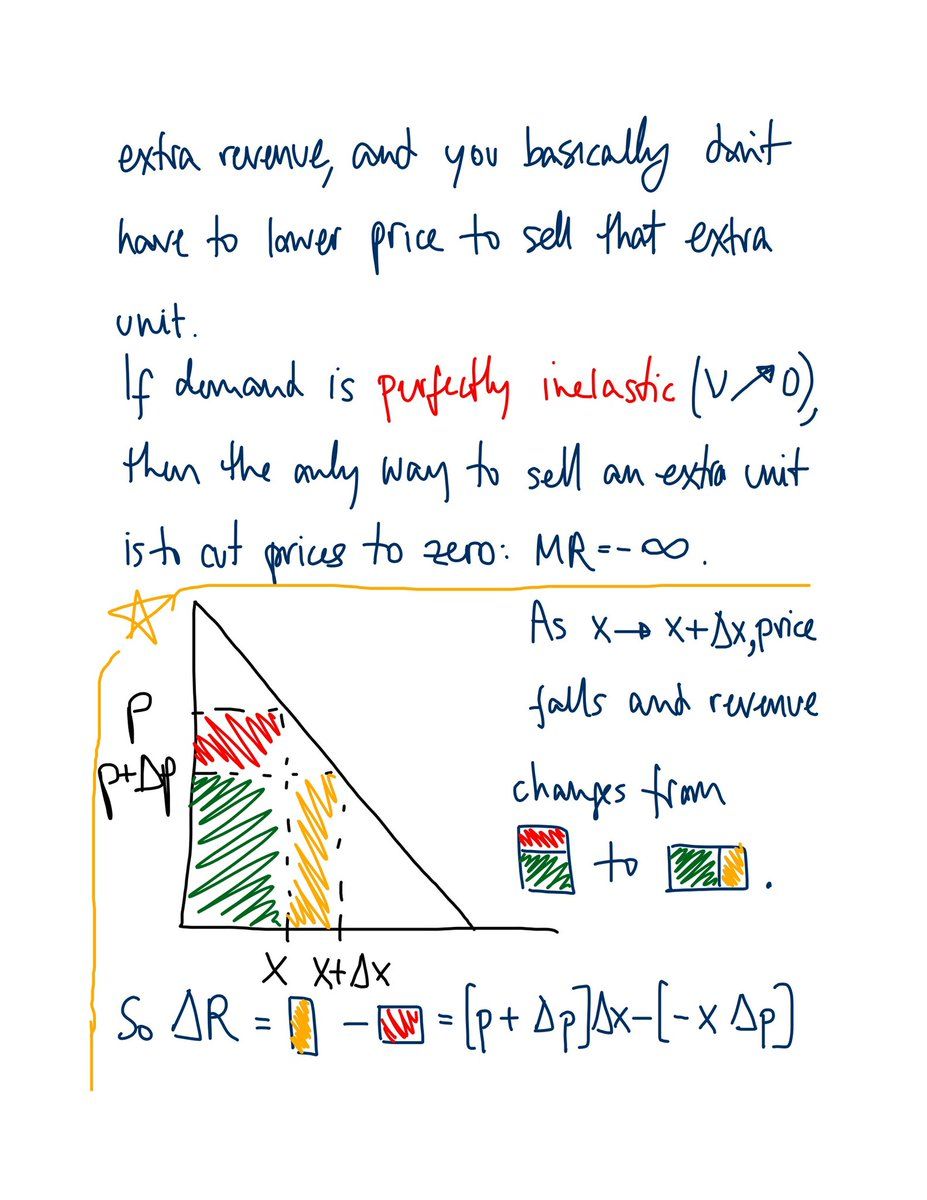 extra revenue, and you basically don't
have to lower price to sell that extra
unit.
If demand is perfectly inelastic (ν↗0),
then the only way to sell an extra unit
is to cut prices to zero: MR = -∞.
As x→x+Δx, price
falls and revenue
changes from
to .
p
p+Δp
x x+Δx
So ΔR = - = [p+Δp]Δx-[-xΔp]